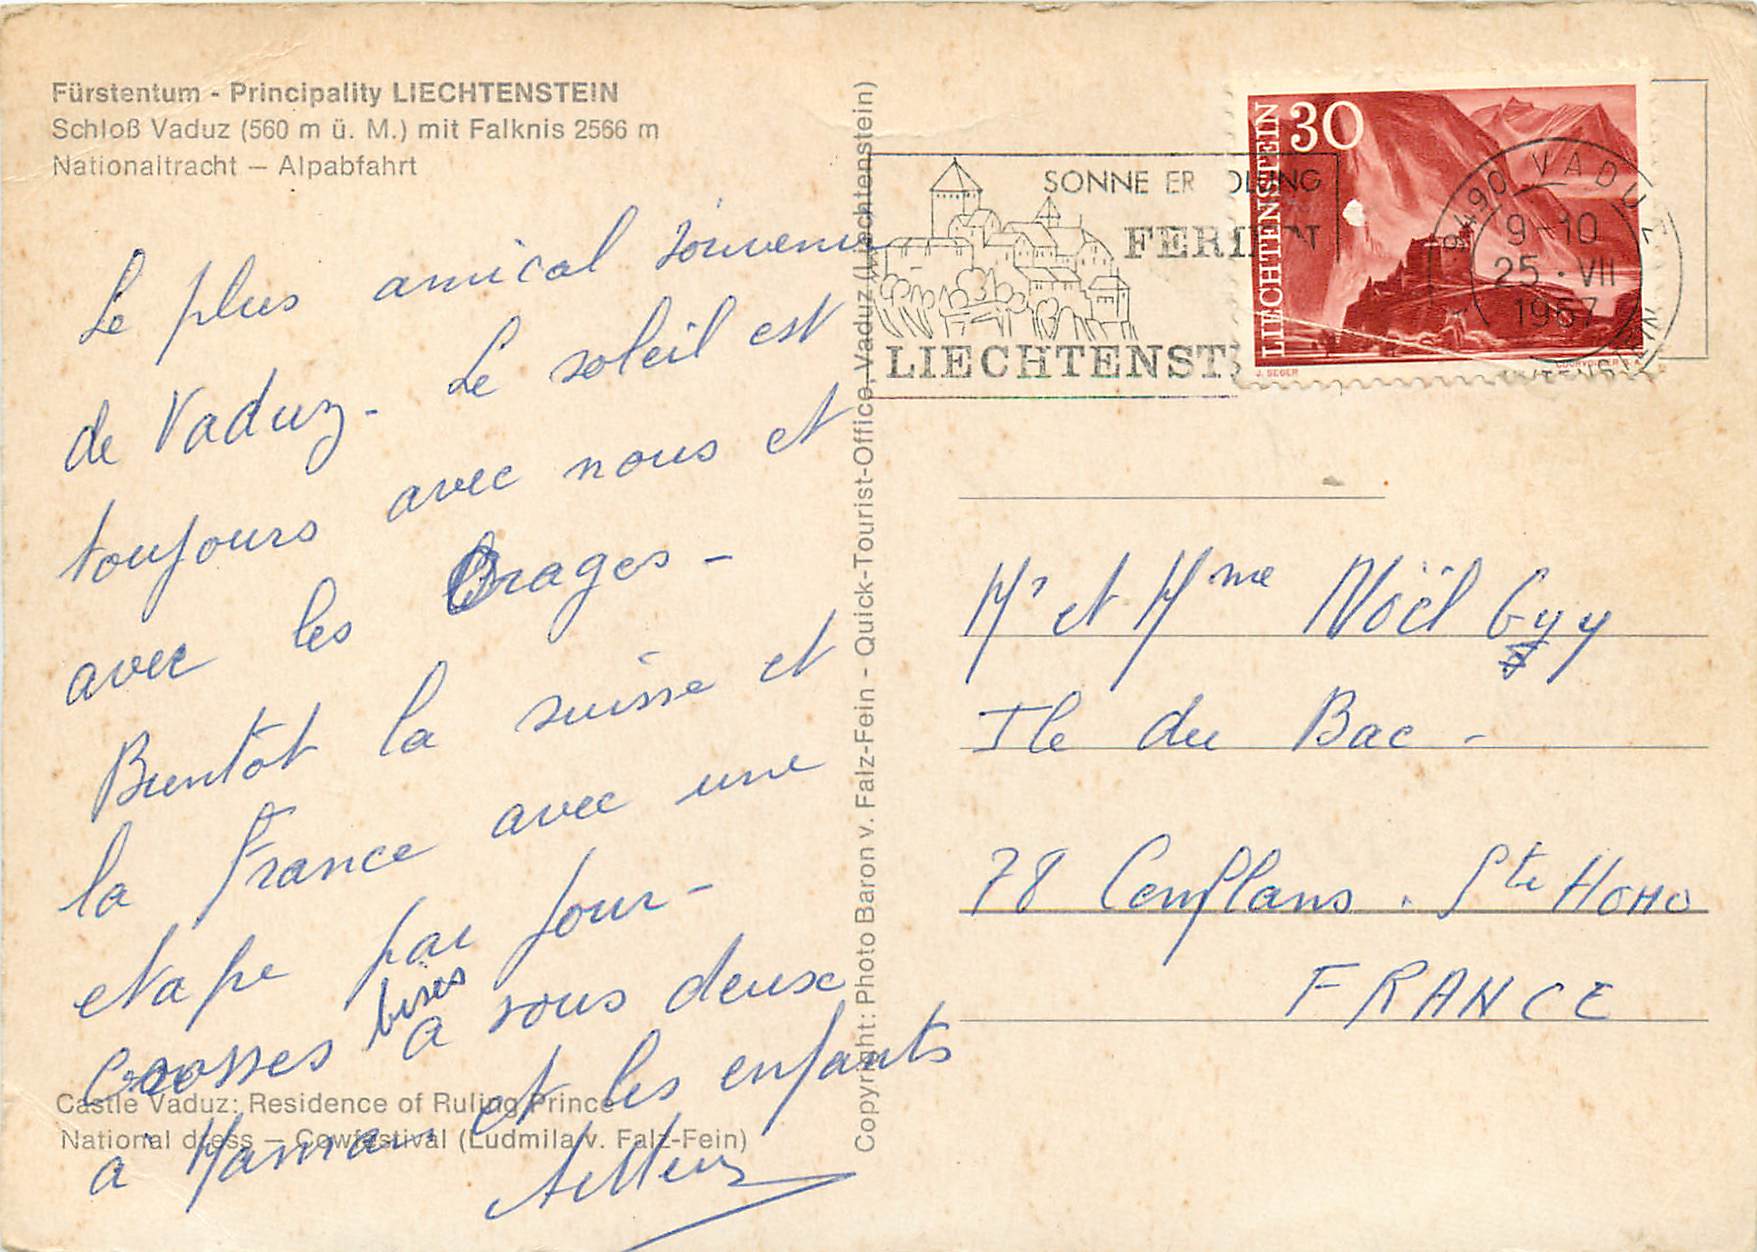 Fürstentum - Principality LIECHTENSTEIN
Schloß Vaduz (560 m ü. M.) mit Falknis 2566 m
Nationaltracht — Alpabfahrt
Le plus amical souvenir
de Vaduz - Le soleil est
toujours avec nous et
avec les Orages -
Bientôt la suisse et
la France avec une
etape par jour -
Grosses bises
à vous deux
et les enfants
à Maman
Castle Vaduz: Residence of Ruling Prince
National dress — Cowfestival (Ludmila v. Falz-Fein)
Copyright: Photo Baron v. Falz-Fein - Quick-Tourist-Office, Vaduz (Liechtenstein)
SONNE ER OLUNG
FERIEN
LIECHTENST
30
LIECHTENSTEIN
J. SEGER
COURVOISIER
9490 VADUZ
9-10
25.VII
1967
Mr et Mme Noël Gyy
Ile du Bac -
78 Conflans . Ste HoHo
FRANCE